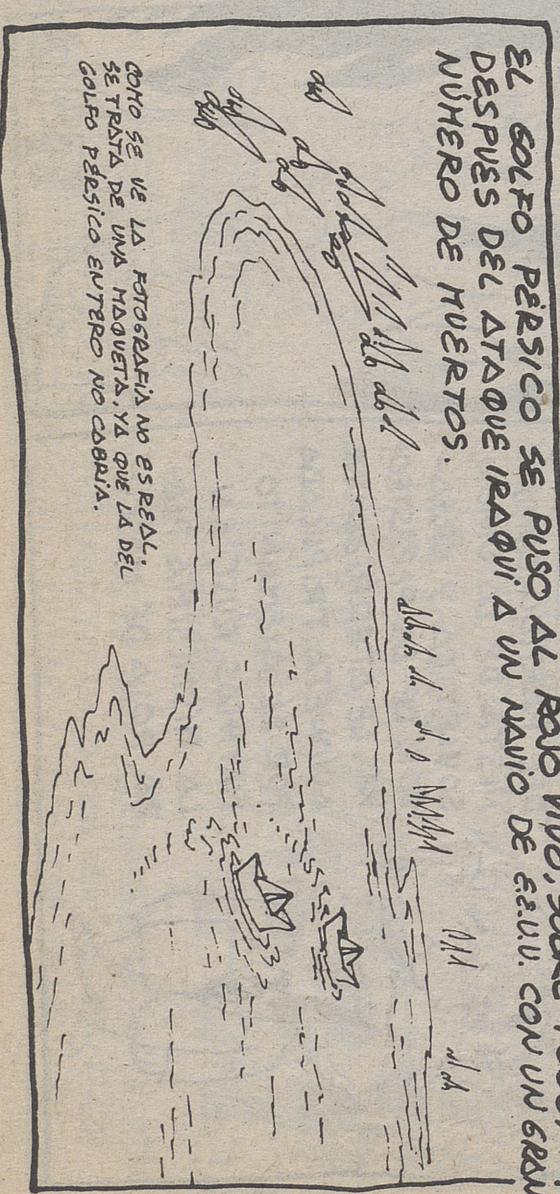 EL GOLFO PÉRSICO SE PUSO AL ROJO VIVO,
DESPUES DEL ATAQUE IRAQUÍ A UN NAVIO DE EE.UU. CON UN GRAN
NÚMERO DE MUERTOS.
COMO SE VE LA FOTOGRAFÍA NO ES REAL.
SE TRATA DE UNA MAQUETA, YA QUE LA DEL
GOLFO PÉRSICO ENTERO NO CABRÍA.